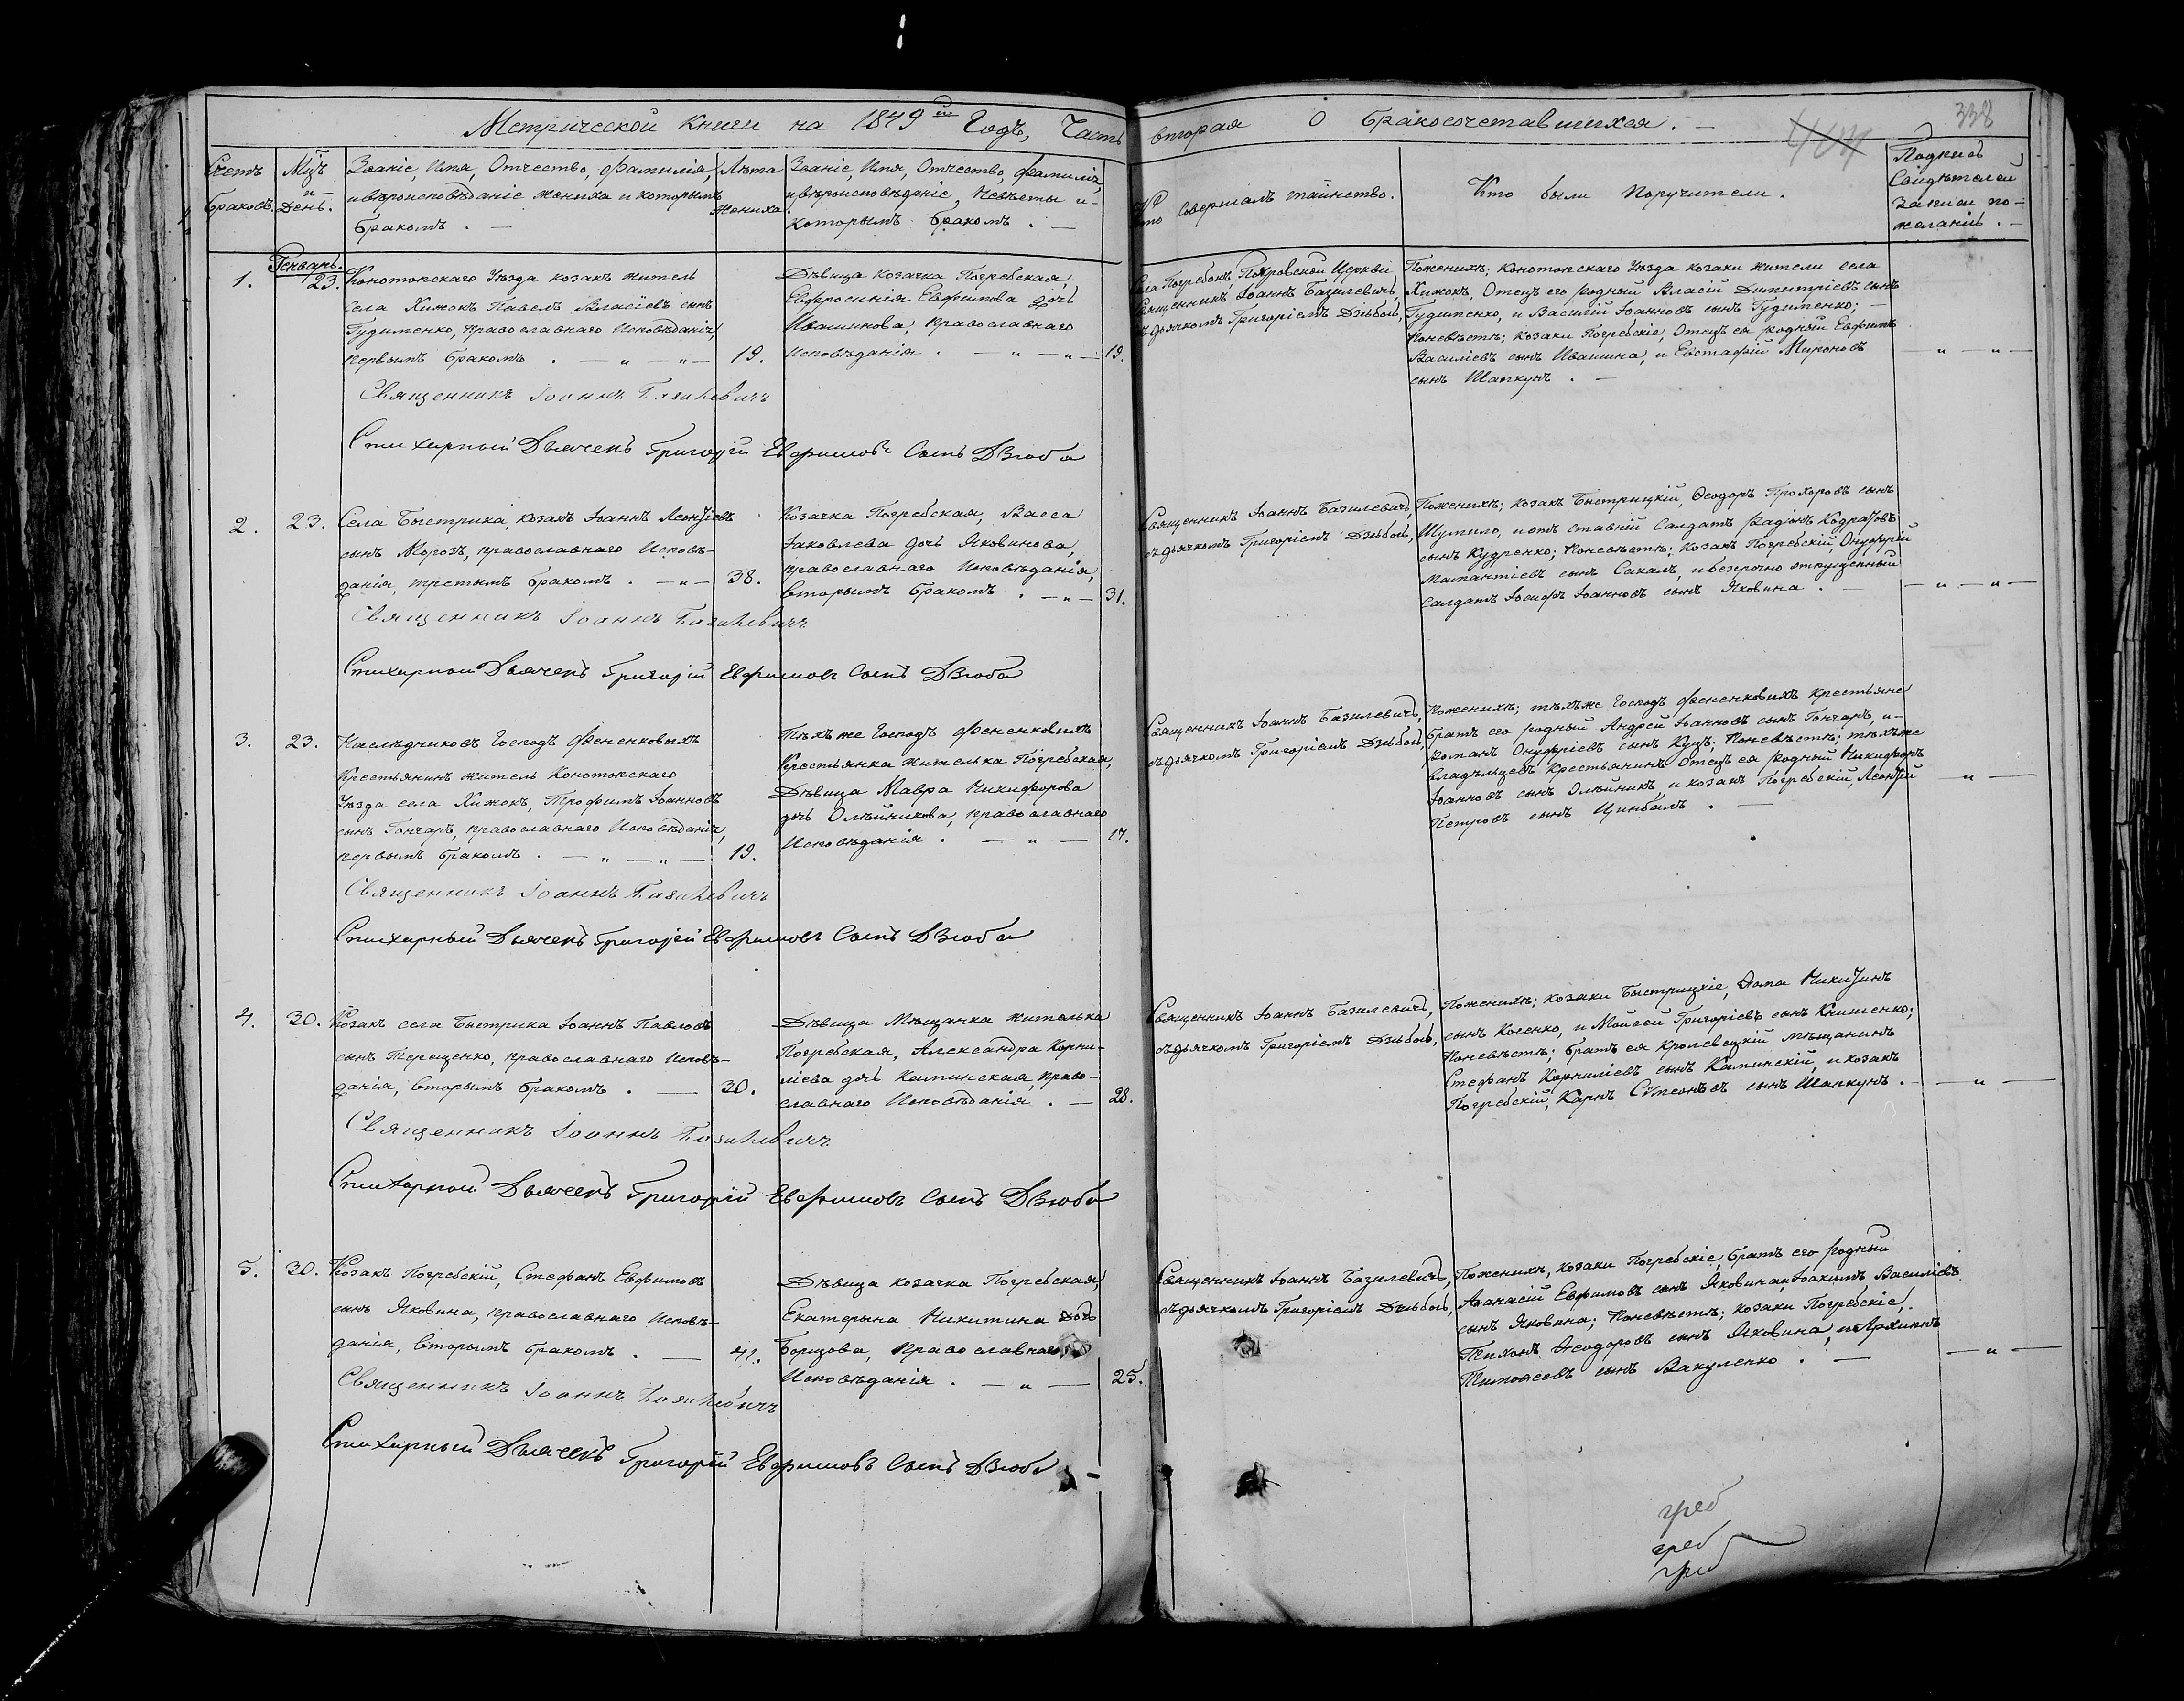 Метрической Книги на 1849й Годъ, Часть вторая О бракосочетавшихся. —
338
Счетъ браковъ.
Мцъ и День.
Званіе, Имя, Отчество, Фамилія,
и вѣроисповѣданіе Жениха и которымъ
бракомъ. —
Лѣта Жениха.
Званіе, Имя, Отчество, Фамилія,
и вѣроисповѣданіе, Невѣсты и
которымъ бракомъ. —
Кто Совершалъ таинство.
Кто были Поручители.
Подпись
Свидѣтелей
Записи по
желанію. —
Генварь.
1. 23.
Конотопскаго Уѣзда козакъ житель
села Хижокъ Павелъ Власіевъ сынъ
Гудименко, православнаго Исповѣданія,
первымъ бракомъ. — „ — „ — 19.
Дѣвица козачка Погребская,
Евфросинія Евфимова дочь
Ивашинова, православнаго
Исповѣданія. — „ — „ — 19.
Села Погребокъ, Покровской Церкви
Священникъ Іоаннъ Базилевичъ,
съ дьячкомъ Григоріемъ Дзюбою,
Поженихѣ; Конотопскаго Уѣзда козаки жители села
Хижокъ, Отецъ его родный Власій Димитріевъ сынъ
Гудименко, и Василій Іоанновъ сынъ Гудименко; —
Поневѣстѣ; козаки Погребскіе, Отецъ ея родный Евфимъ
Василіевъ сынъ Ивашина, и Евстафій Мироновъ
сынъ Шапкунъ. —
— „ — „ —
Священникъ Іоаннъ Базилевичъ
Стихарный Дьячекъ Григорій Евфимовъ Сынъ Дзюба
2. 23.
Села Быстрика, козакъ Іоаннъ Леонтіевъ
сынъ Морозъ, православнаго Исповѣ-
данія, третьимъ бракомъ. — „ — 38.
Козачка Погребская, Васса
Іаковлева дочь Яковинова,
православнаго Исповѣданія,
вторымъ бракомъ. — „ — 31.
Священникъ Іоаннъ Базилевичъ,
съ дьячкомъ Григоріемъ Дзюбою,
Поженихѣ; козакъ Быстрицкій, Ѳеодоръ Прохоровъ сынъ
Шумило, и отъ ставній Салдатъ Радіонъ Кодратовъ
сынъ Кудренко; Поневѣстѣ; козакъ Погребскій, Онуфрій
сынъ Сакалъ, и безсрочно отпущенный
салдатъ Іосифъ Іоанновъ сынъ Яковина. —
— „ — „ —
Священникъ Іоаннъ Базилевичъ
Стихарной Дьячекъ Григорій Евфимовъ Сынъ Дзюба
3. 23.
Наслѣдниковъ Господъ Фененковыхъ
Крестьянинъ житель Конотопскаго
Уѣзда села Хижокъ, Трофимъ Іоанновъ
сынъ Гончаръ, православнаго Исповѣданія,
первымъ бракомъ. — „ — „ — 19.
Тѣхъ же Господъ Фененковыхъ
Крестьянка жителька Погребская,
Дѣвица Мавра Никифорова
дочь Олѣйникова, православнаго
Исповѣданія. — „ — 17.
Священникъ Іоаннъ Базилевичъ,
съ дьячкомъ Григоріемъ Дзюбою,
Поженихѣ; тѣхъ же Господъ Фененковыхъ крестьяне
братъ его родный Андрей Іоанновъ сынъ Гончаръ, и
Романъ Онуфріевъ сынъ Куцъ; Поневѣстѣ; тѣхъ же
владѣльцевъ Крестьянинъ Отецъ ея родный Никифоръ
Іоанновъ сынъ Олѣйникъ, и козакъ Погребскій, Леонтій
Петровъ сынъ Цинбалъ. —
— „ —
Священникъ Іоаннъ Базилевичъ
Стихарный Дьячекъ Григорій Евфимовъ Сынъ Дзюба
4. 30.
Козакъ села Быстрика Іоаннъ Павловъ
сынъ Терещенко, православнаго Исповѣ-
данія, вторымъ бракомъ. — 30.
Дѣвица Мѣщанка жителька
Погребская, Александра Корни-
ліева дочь Каминская, право-
славнаго Исповѣданія. — 28.
Священникъ Іоаннъ Базилевичъ,
съ дьячкомъ Григоріемъ Дзюбою,
Поженихѣ; козаки Быстрицкіе, Ѳома Никитинъ
сынъ Косенко, и Моисей Григоріевъ сынъ Книшенко;
Поневѣстѣ; братъ ея Кролевецкій мѣщанинъ
Стефанъ Корниліевъ сынъ Каминскій, и козакъ
Погребскій, Карпъ Сѵмеоновъ сынъ Шапкунъ. —
— „ —
Священникъ Іоаннъ Базилевичъ
Стихарной Дьячекъ Григорій Евфимовъ Сынъ Дзюба
5. 30.
Козакъ Погребскій, Стефанъ Евфимовъ
сынъ Яковина, православнаго Исповѣ-
данія, вторымъ бракомъ. — 41.
Дѣвица козачка Погребская,
Екатерына Никитина дочь
Борцова, православнаго
Исповѣданія. — „ — 25.
Священникъ Іоаннъ Базилевичъ,
съ дьячкомъ Григоріемъ Дзюбою,
Поженихѣ, козаки Погребскіе, братъ его родный
Аѳанасій Евфимовъ сынъ Яковина, и Іоакимъ Василіевъ
сынъ Яковина; Поневѣстѣ; козаки Погребскіе,
Тихонъ Ѳеодоровъ сынъ Яковина, и Архипъ
Тимоѳеевъ сынъ Вакуленко. —
— „ —
Священникъ Іоаннъ Базилевичъ
Стихарный Дьячекъ Григорій Евфимовъ Сынъ Дзюба
греб
греб
греб